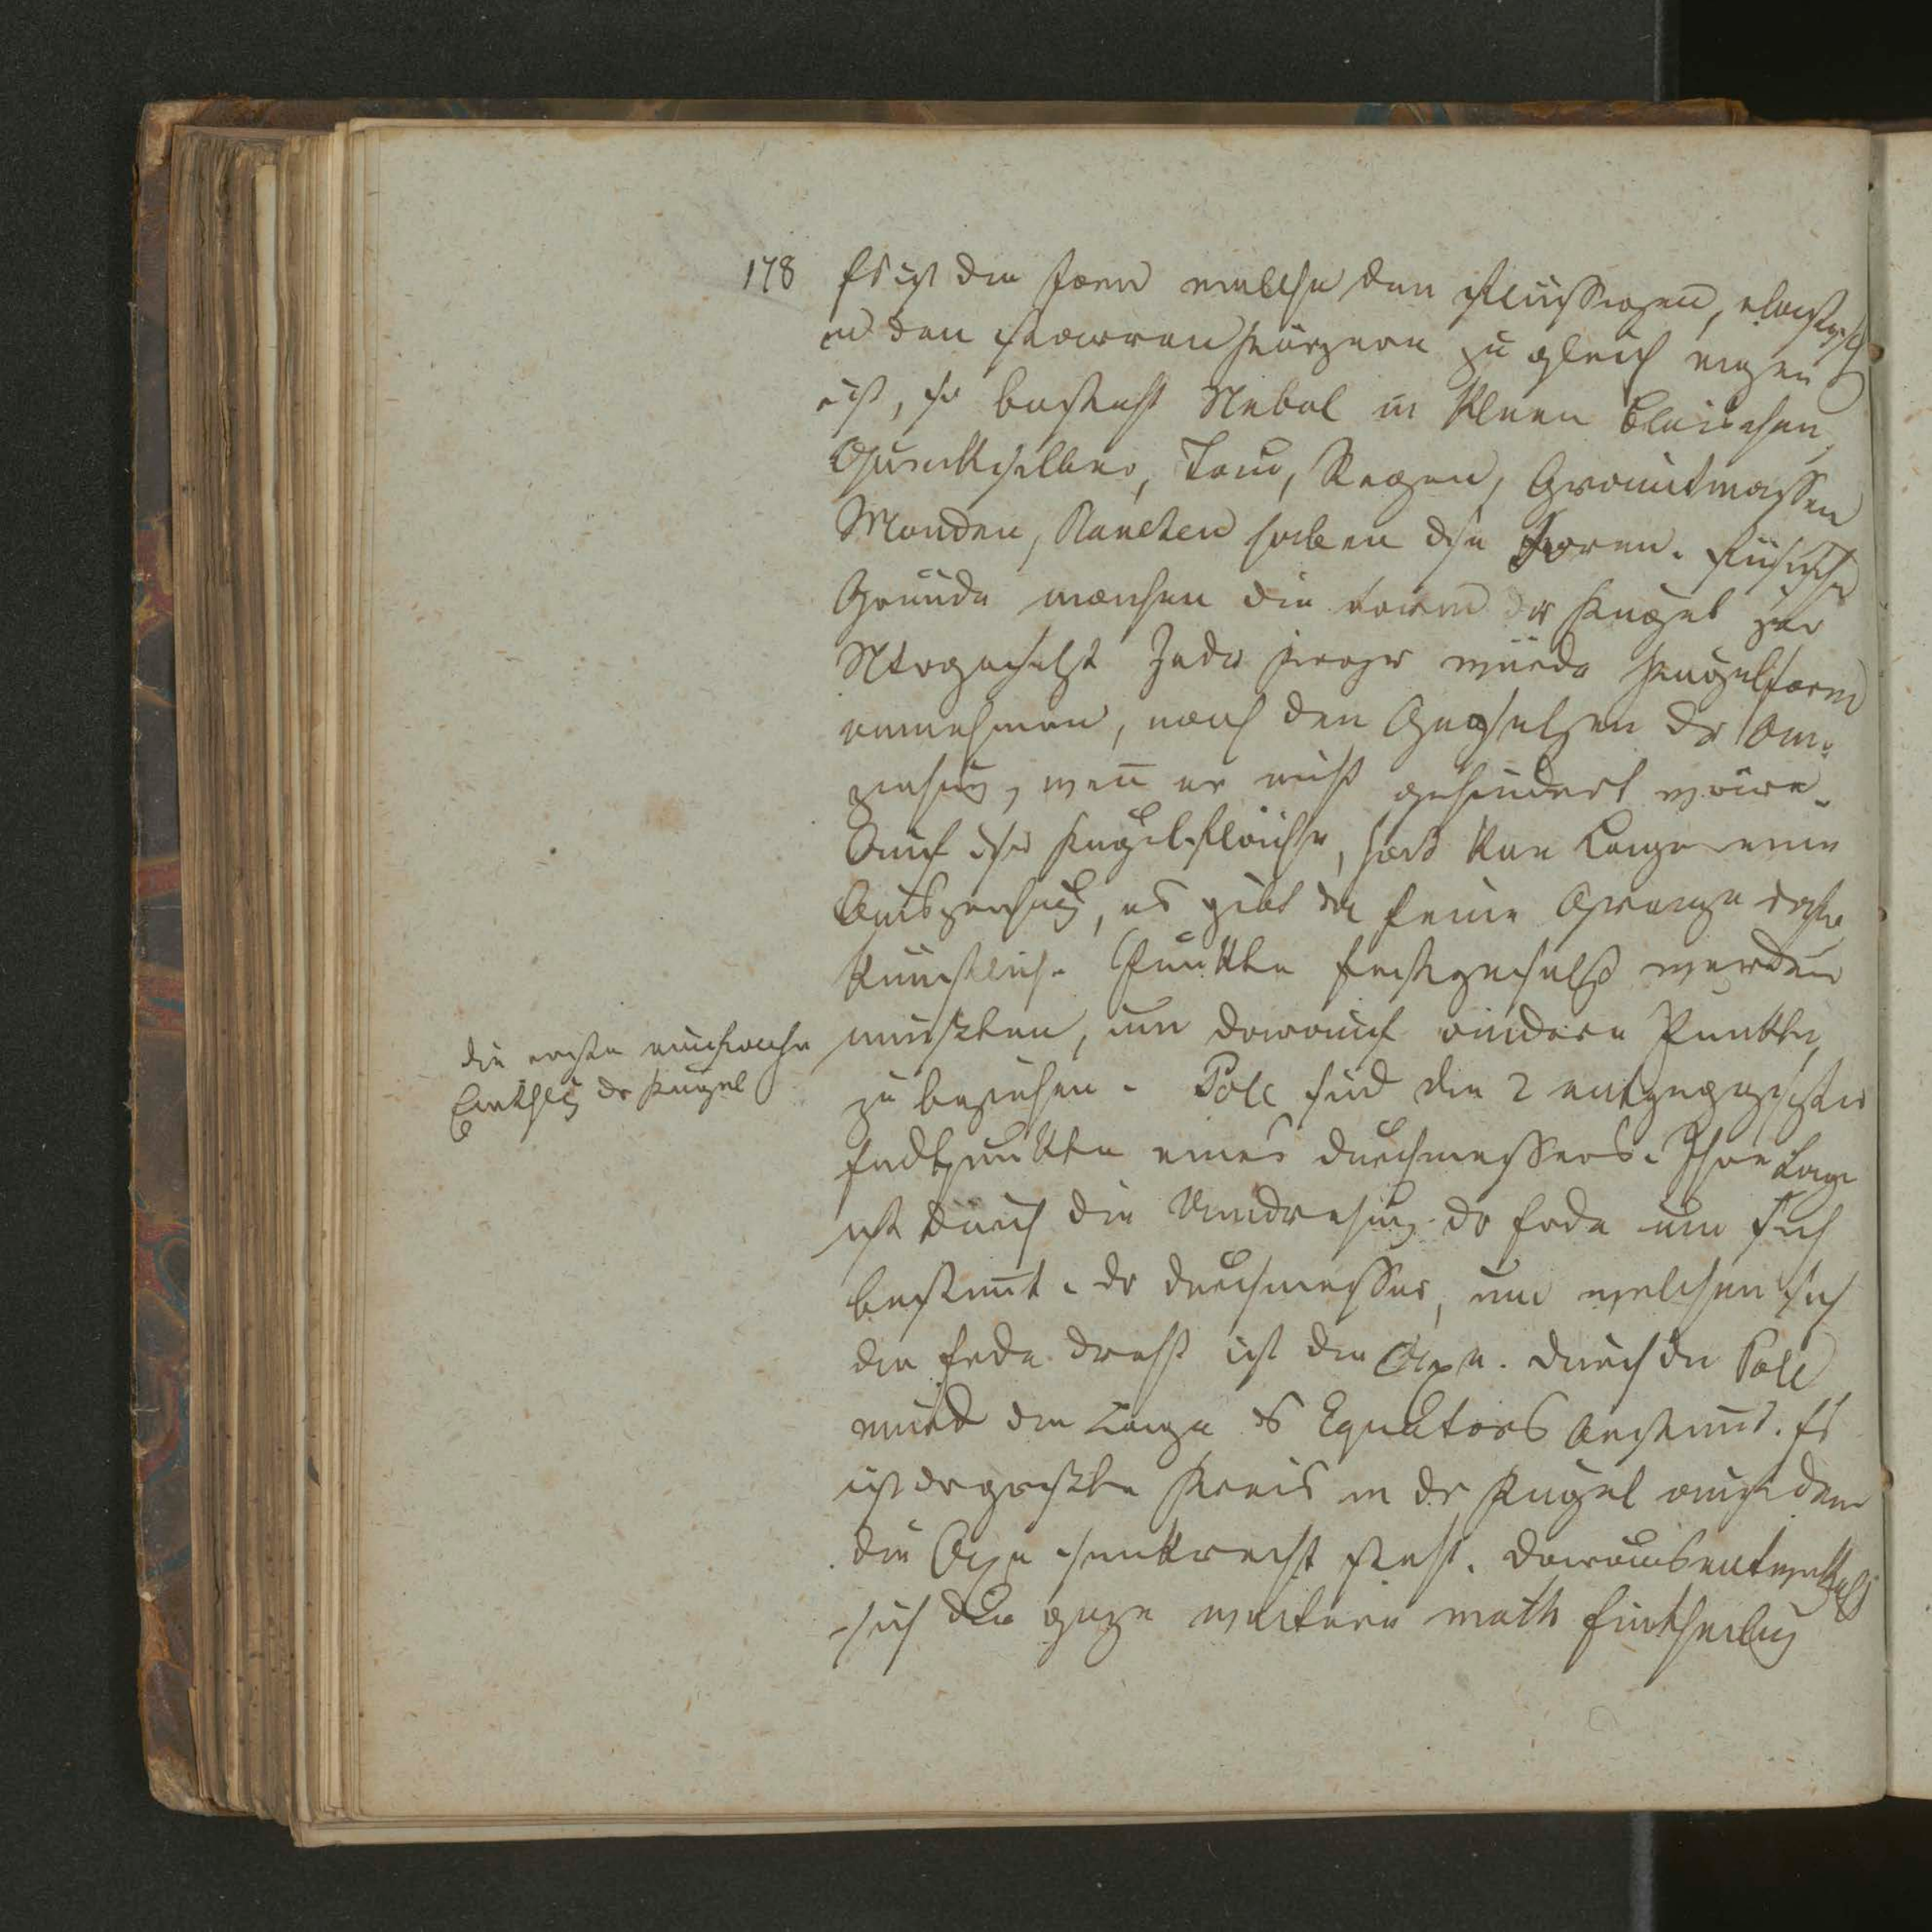 178 Es ist die Form welche den flüssigen, elastisch
u den starren Körpern zu gleich eigen
ist, so besteht Nebel in kleen Bläschen,
Quecksilber, Tau, Regen, Granitmassen
Monden, Planeten haben dse Form. Füsische
Gründe machen die Form der Kugel zur
Jeder würde Kugelform
annehmen, nach den Gesetzen der An-
ziehung, wen er nicht gehindert wäre.
Auf dser Kugelfläche, hat kene Lage eine
Auszeichung, es gibt da keine Grenze daher
künstliche Punkte festgesetzt werden
mußten, um darauf andere Punkte
zu beziehen. Pole sind die 2 entgegegesezten
Endpunkte eines Durchmessers. Ihre Lage
ist durch die Umdrehung dr Erde um sich
bestimt. Dr Durchmesser, um welchen sich
die Erde dreht ist die Axe. Durch die Pole
wird die Lage ds Equators bestimt. Es
ist dr größte Kreis in dr Kugel auf dem
die Axe senkrecht steht. Daraus entwickelt
sich die gaze weitere math Eintheilug
die erste einfache
Einthlg dr Kugel